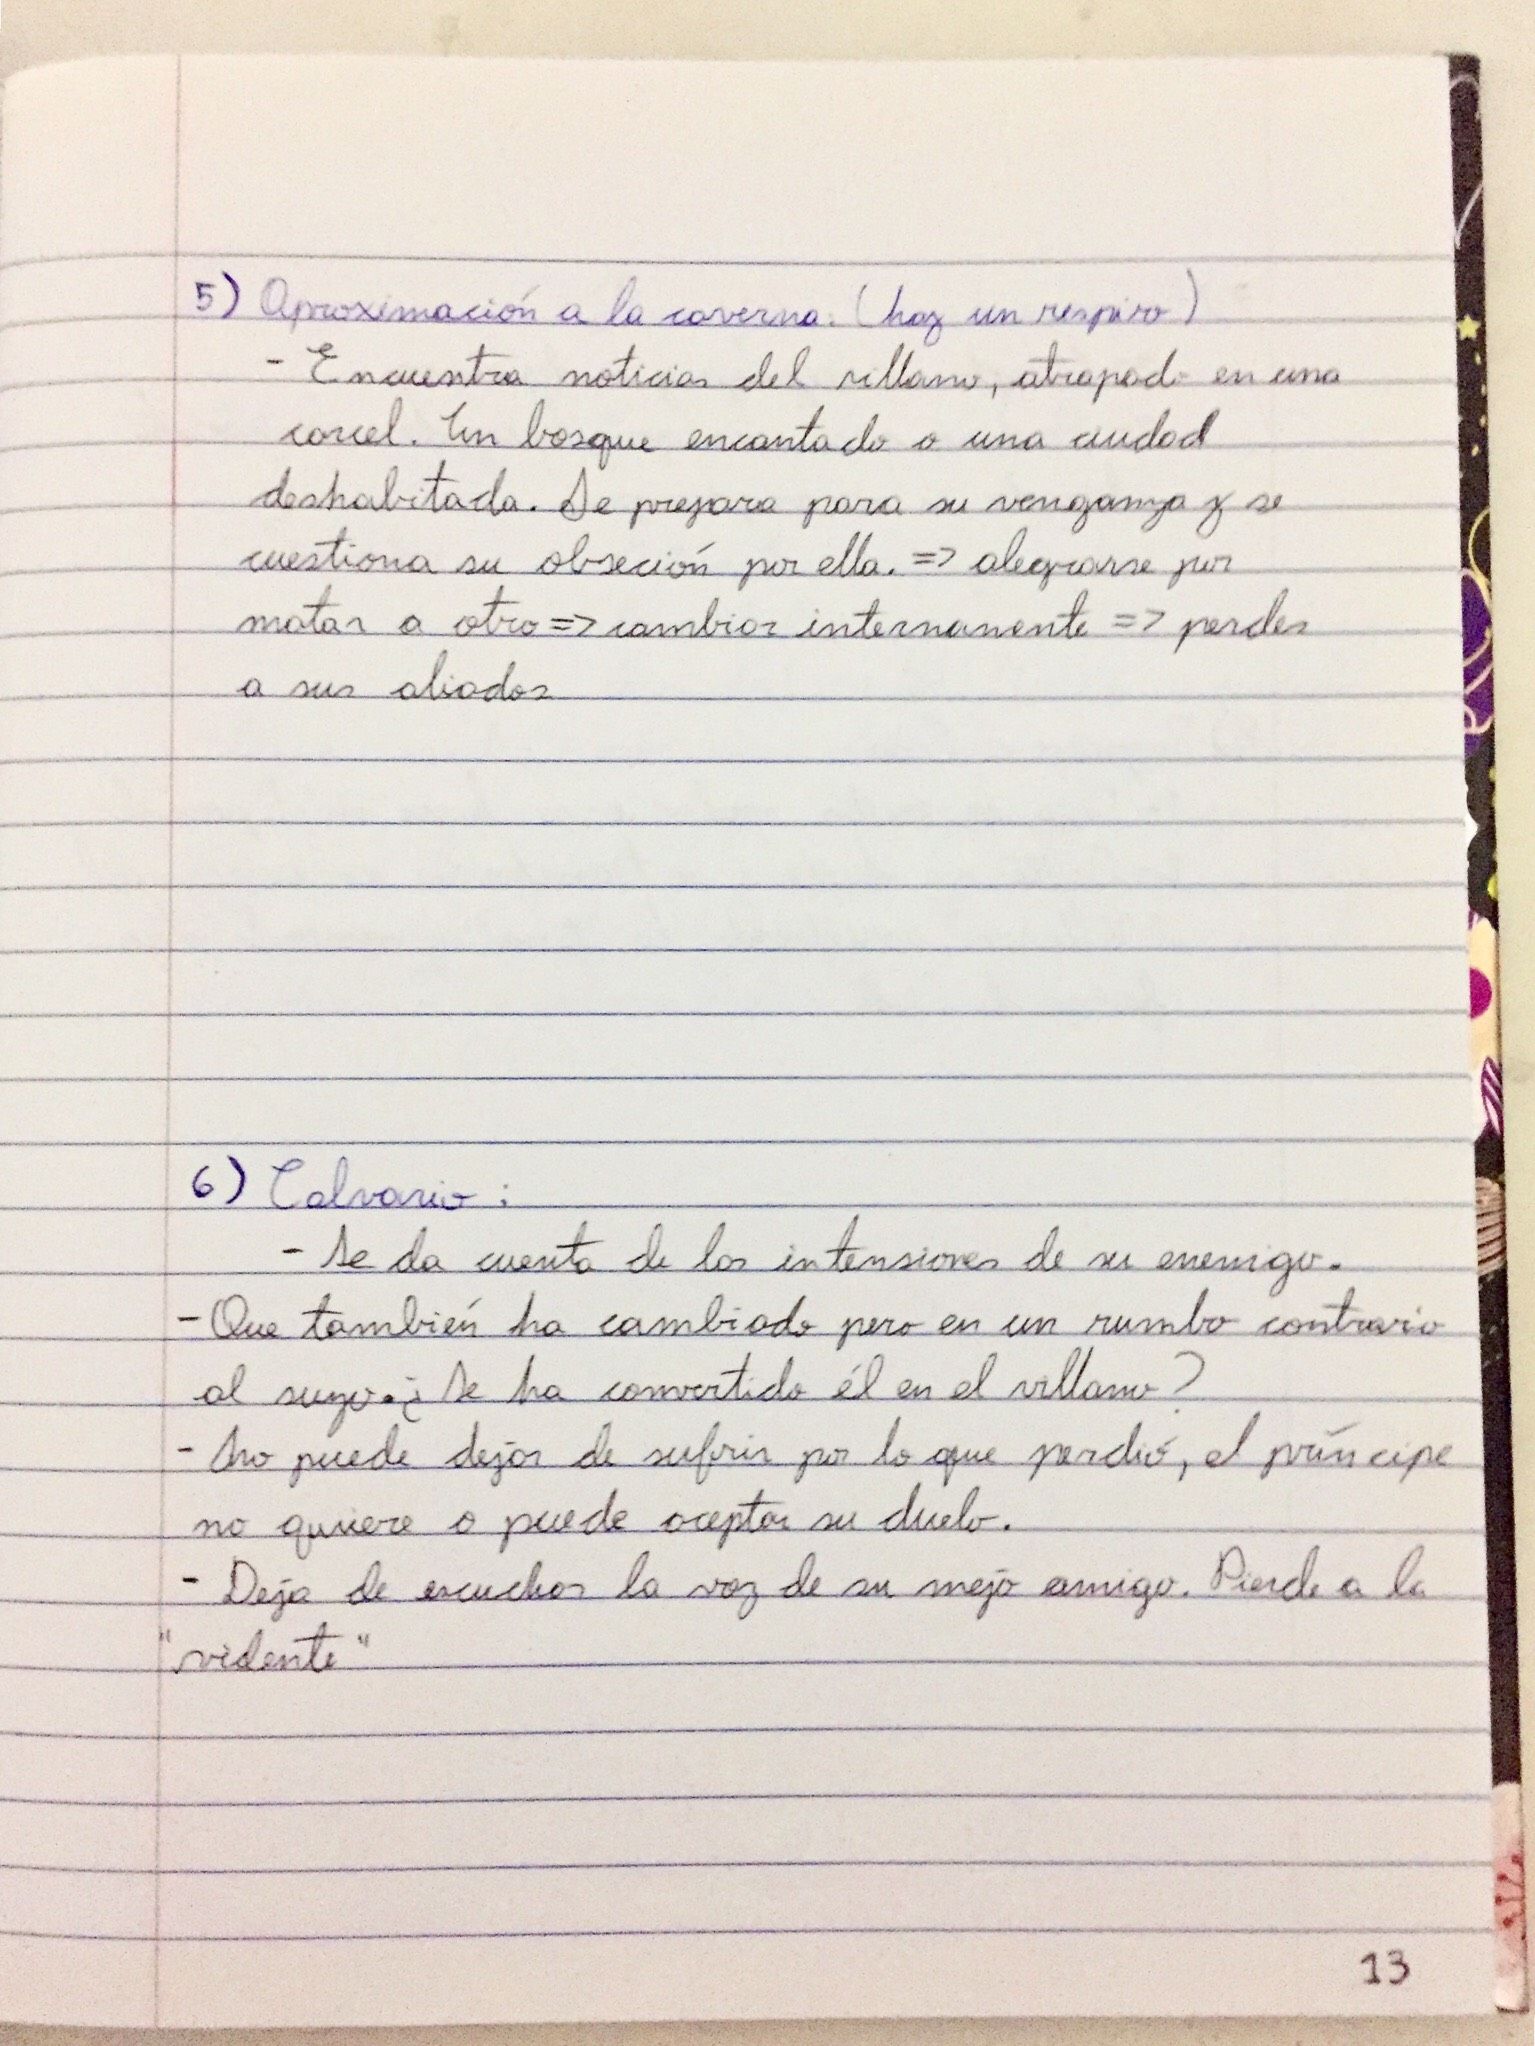 5) Aproximación a la caverna. (hay un respiro)
- Encuentra noticias del villano, atrapado en una
carcel. Un bosque encantado o una ciudad
deshabitada. Se prepara para su venganza y se
cuestiona su obseción por ella. => alegrarse por
matar a otro => cambiar internamente => perder
a sus aliados
6) Calvario:
- Se da cuenta de las intensiones de su enemigo.
- Que también ha cambiado pero en un rumbo contrario
al suyo. ¿Se ha convertido él en el villano?
- No puede dejar de sufrir por lo que perdió, el príncipe
no quiere o puede aceptar su duelo.
- Deja de escuchar la voz de su mejo amigo. Pierde a la
"vidente"
13